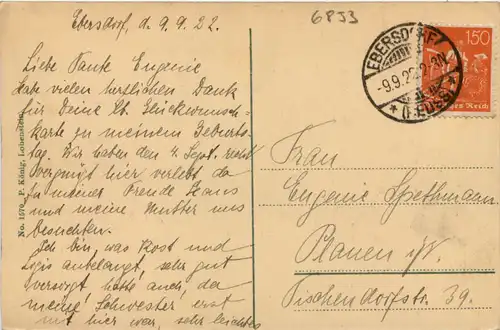 Ebersdorf, d. 9. 9. 22.
6PJ3
Liebe Tante Eugenie
habe vielen herzlichen Dank
für Deine lb. Glückwunsch-
karte zu meinem Geburts-
tag. Wir haben den 4. Sept. recht
vergnügt hier verlebt da
zu meiner Freude Hans
und meine Mutter uns
besuchten.
Ich bin, was Kost und
Logis anbelangt, sehr gut
versorgt hatte auch, da
meine Schwester erst
mit hier war, sehr leichtes
No. 1570 P. König, Lobenstein.
EBERSDORF
-9.9.22
(REUSS)
150
Deutsches Reich
Frau
Eugenie Spethmann
Plauen i/V.
Tischendorfstr. 39.